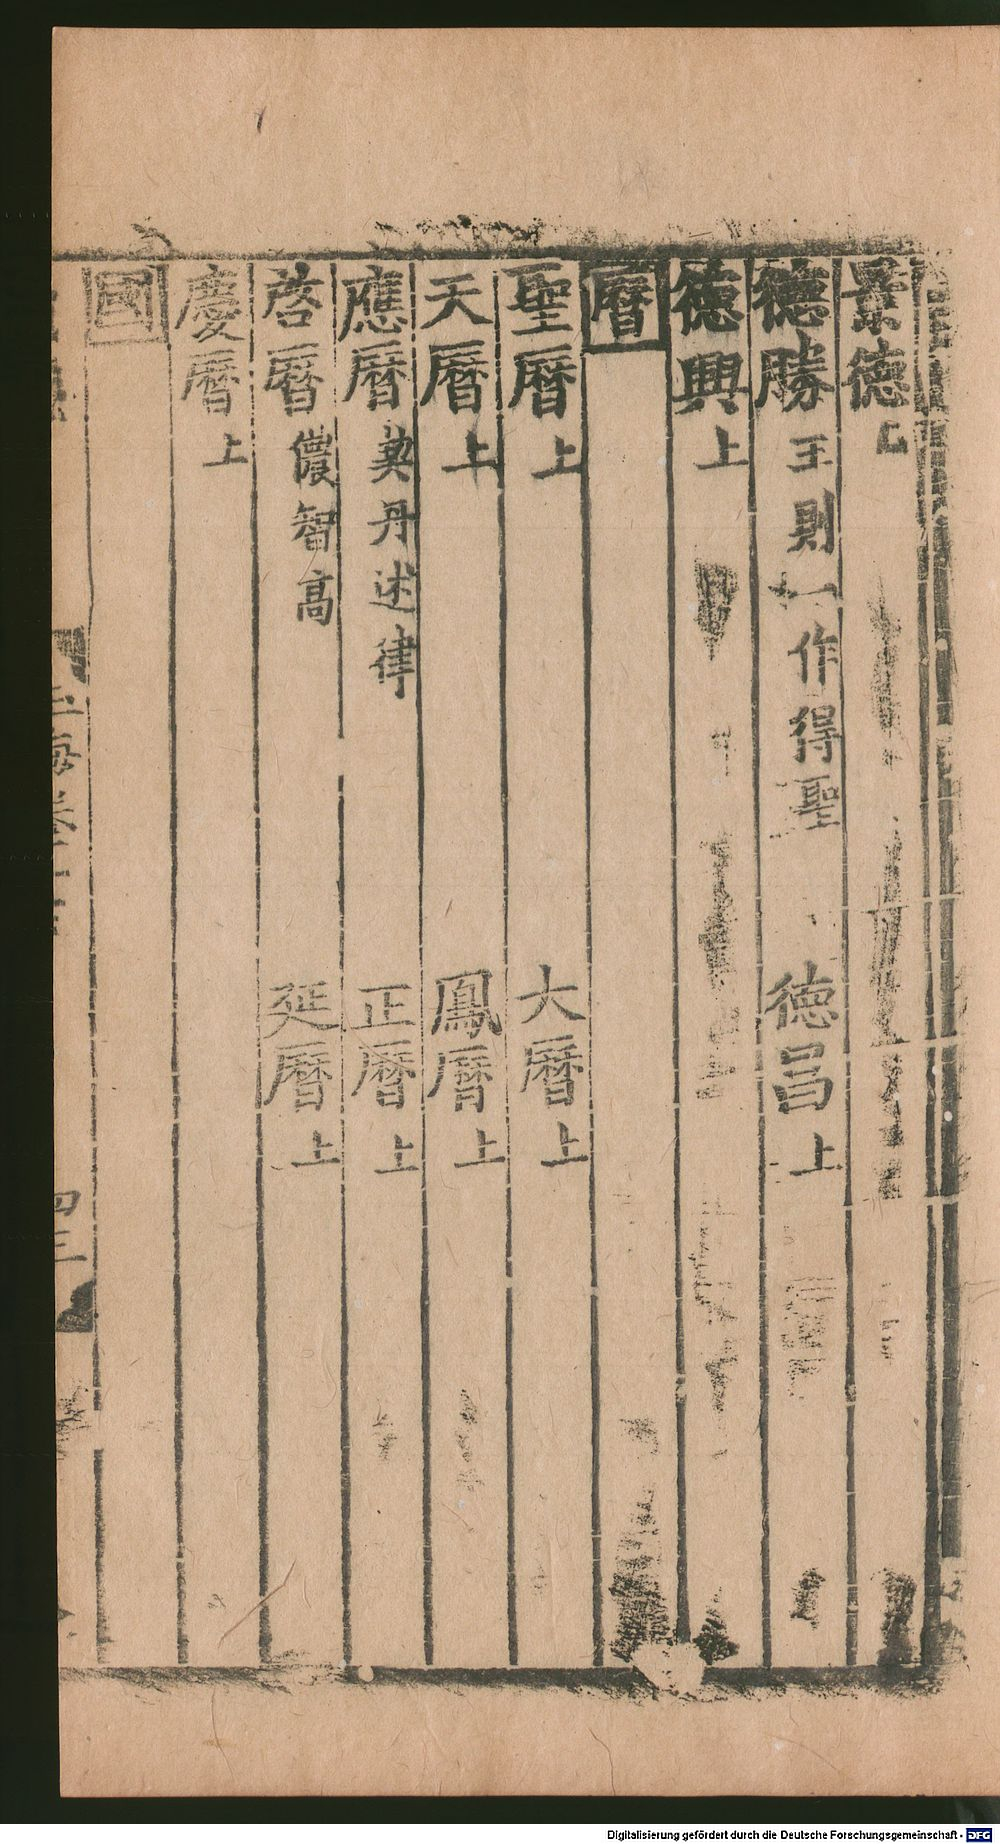 景德上
德勝王則一作得聖 德昌上
德興上
曆
聖曆上 大曆上
天曆上 鳳曆上
應曆契丹述律 正曆上
啓曆儂智高 延曆上
慶曆上
國
玉海卷十三
四三
Digitalisierung gefördert durch die Deutsche Forschungsgemeinschaft - DFG